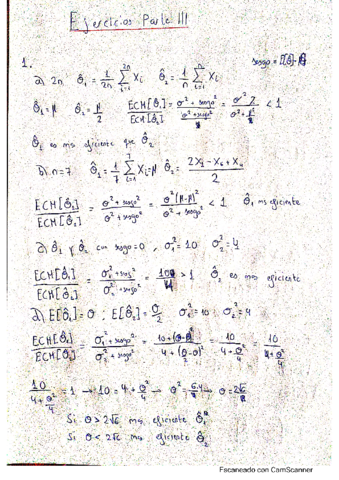 Ejercicios Parte III
sesgo = E[θ̂]-θ
1.
a) 2n θ̂₁ = 1/2n ∑ᵢ₌₁²ⁿ Xᵢ θ̂₂ = 1/n ∑ᵢ₌₁ⁿ Xᵢ
θ̂₁ = μ θ̂₂ = μ/2 ECH[θ̂₁]/ECH[θ̂₂] = σ² + sesgo²/σ² + sesgo² < 1
θ̂₁ es mas eficiente que θ̂₂
b) n=7 θ̂₁ = 1/7 ∑ᵢ₌₁⁷ Xᵢ = μ θ̂₂ = 2X₁ - X₆ + X₄/2
ECH[θ̂₁]/ECH[θ̂₂] = σ² + sesgo²/σ² + sesgo² = σ²(μ-μ)²/σ² + sesgo² < 1 θ̂₁ mas eficiente
θ̂₁ y θ̂₂ con sesgo=0, σ₁² = 10 σ₂² = 4
ECH[θ̂₁]/ECH[θ̂₂] = σ₁² + sesgo²/σ₂² + sesgo² = 10/4 > 1 θ̂₂ es mas eficiente
d) E[θ̂₁] = θ ; E[θ̂₂] = θ/2 σ₁² = 10 ; σ₂² = 4
ECH[θ̂₁]/ECH[θ̂₂] = σ₁² + sesgo²/σ₂² + sesgo² = 10 + (θ-θ)²/4 + (θ/2-θ)² = 10/4 + θ²/4 = 10/4 + θ²/4
10/4 + θ²/4 = 1 → 10 = 4 + θ²/4 → θ² = 6·4 → θ = 2√6
Si θ > 2√6 mas eficiente θ̂₁
Si θ < 2√6 mas eficiente θ̂₂
Escaneado con CamScanner